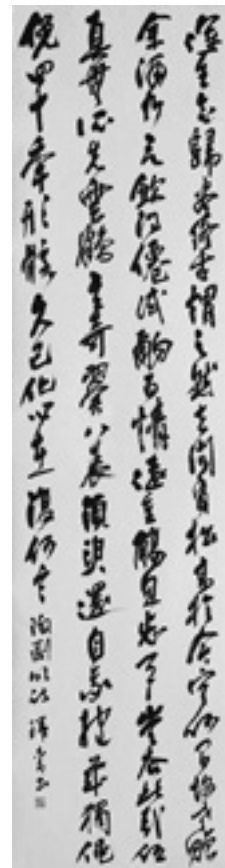 運生會歸盡終古謂之然世間有松喬於今定何間故老贈
余酒乃言飲得僊試酌百情遠重觴忽忘天豈去此哉任
真無所先雲鶴有奇翼八表須臾還自我抱茲獨僶
俛四十年形骸久已化心在復何言